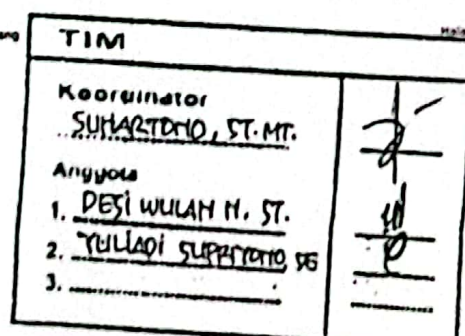 TIM
Koordinator
SUHARTONO, ST. MT.
Anggota
1. DESI WULAN N. ST.
2. YULIADI SUPRIYONO, SE
3.